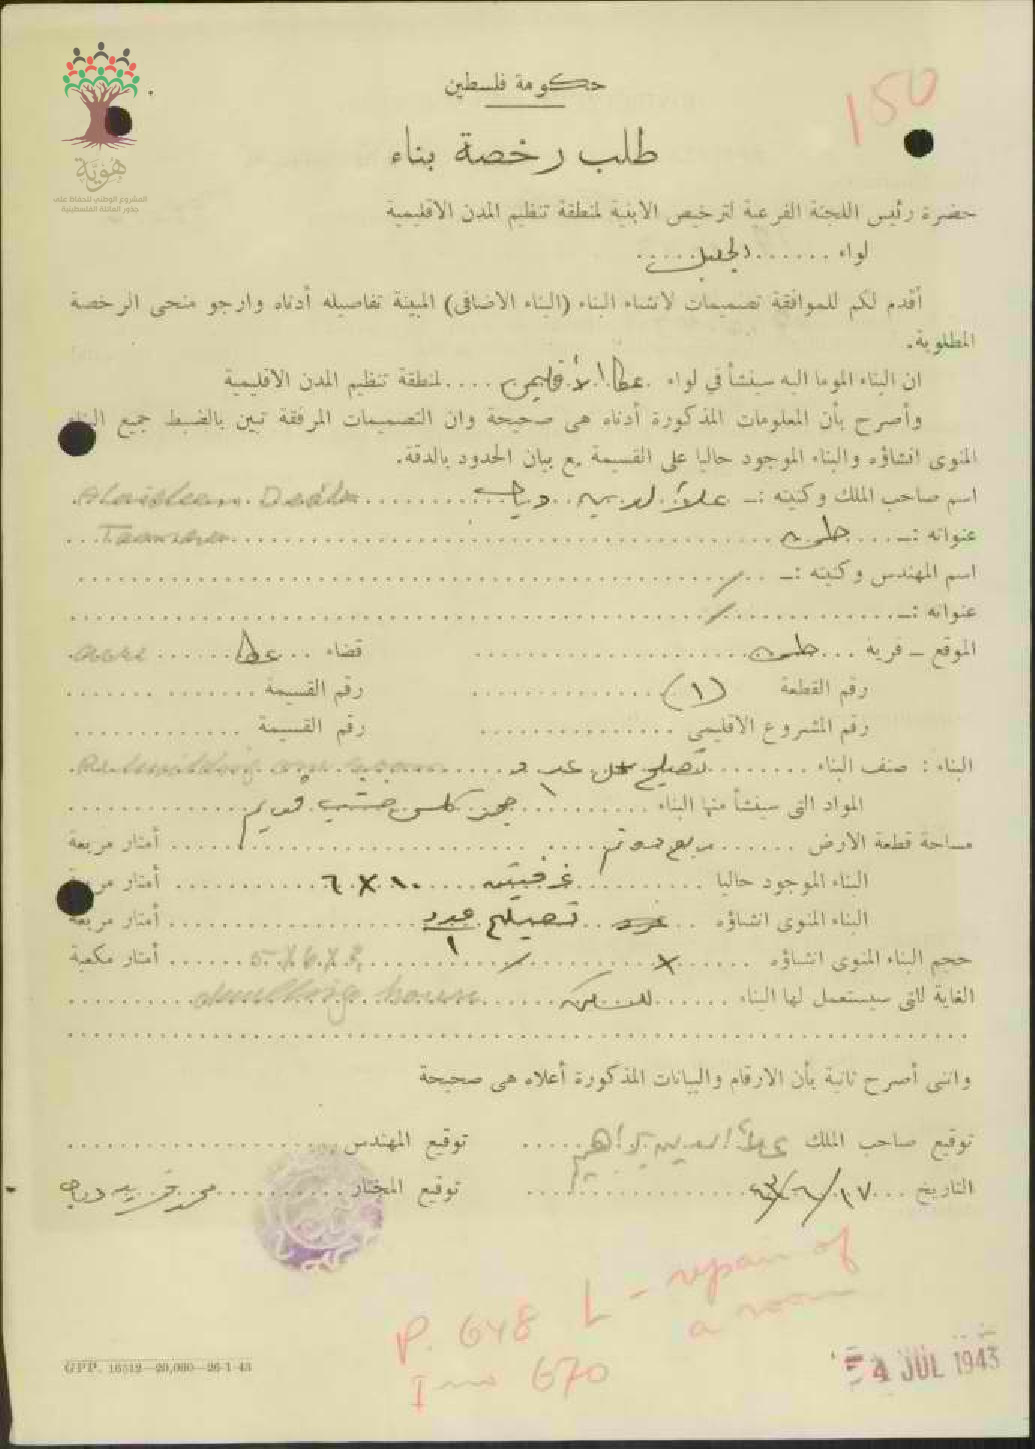 هُوِيَّة
المشروع الوطني للحفاظ على
جذور العائلة الفلسطينية
حكومة فلسطين
150
طلب رخصة بناء
حضرة رئيس اللجنة الفرعية لترخيص الابنية لمنطقة تنظيم المدن الاقليمية
لواء الجليل
أقدم لكم للموافقة تصميمات لانشاء البناء (البناء الاضافى) المبينة تفاصيله أدناه وارجو منحى الرخصة
المطلوبة.
ان البناء الموما اليه سينشأ في لواء عكا لمنطقة تنظيم المدن الاقليمية
وأصرح بأن المعلومات المذكورة أدناه هى صحيحة وان التصميمات المرفقة تبين بالضبط جميع البناء
المنوى انشاؤه والبناء الموجود حاليا على القسيمة مع بيان الحدود بالدقة.
اسم صاحب الملك وكنيته :— علاء الدين دياب
عنوانه :— Tamra
اسم المهندس وكنيته :—
عنوانه :—
الموقع — قرية قضاء عكا acre
رقم القطعة (١) رقم القسيمة
رقم المشروع الاقليمي رقم القسيمة
البناء : صنف البناء تصليح
المواد التى سينشأ منها البناء حجر كلس خشب قديم
مساحة قطعة الارض ربع دونم أمتار مربعة
البناء الموجود حاليا غرفتين ١٠ X ٦ أمتار مربعة
البناء المنوى انشاؤه تصليح عدد ١ أمتار مربعة
حجم البناء المنوى انشاؤه X 5 X 6 X 3 أمتار مكعبة
الغاية التى سيستعمل لها البناء للسكن dwelling house
وانى أصرح ثانية بأن الارقام والبيانات المذكورة أعلاه هى صحيحة
توقيع صاحب الملك علاء الدين ابراهيم توقيع المهندس
التاريخ ١٧/٦/٤٣ توقيع المختار محمد فريد دياب
P. 648 L - repair of
a room
I no 670
GPP. 16512—20,000—26-1-43
4 JUL 1943